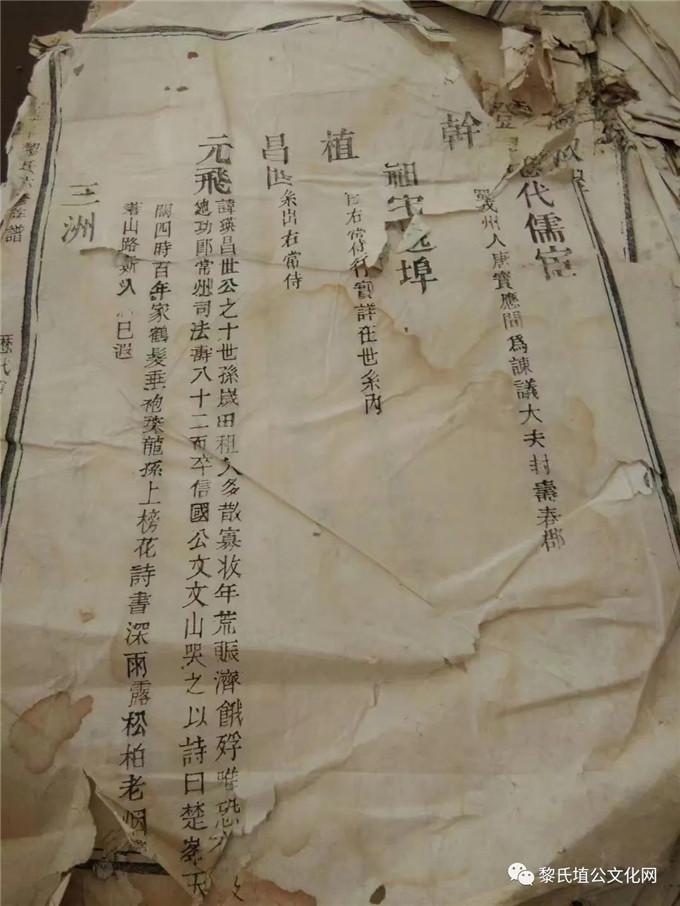 代儒宦
州人唐寶應間爲諫議大夫封壽春郡
幹
埠
右常侍行實詳在世系內
植
昌
系出右常侍
元飛
諱瑛昌世公之十世孫歲田租入多散寡收年荒賑濟餓殍唯恐
迪功郎常州司法壽八十二而卒信國公文文山哭之以詩曰楚峯天
闊四時百年家鶴髮垂袍
龍孫上榜花詩書深雨露松柏老烟
山路新
巳遐
三洲
譜
歷代
黎氏埴公文化网